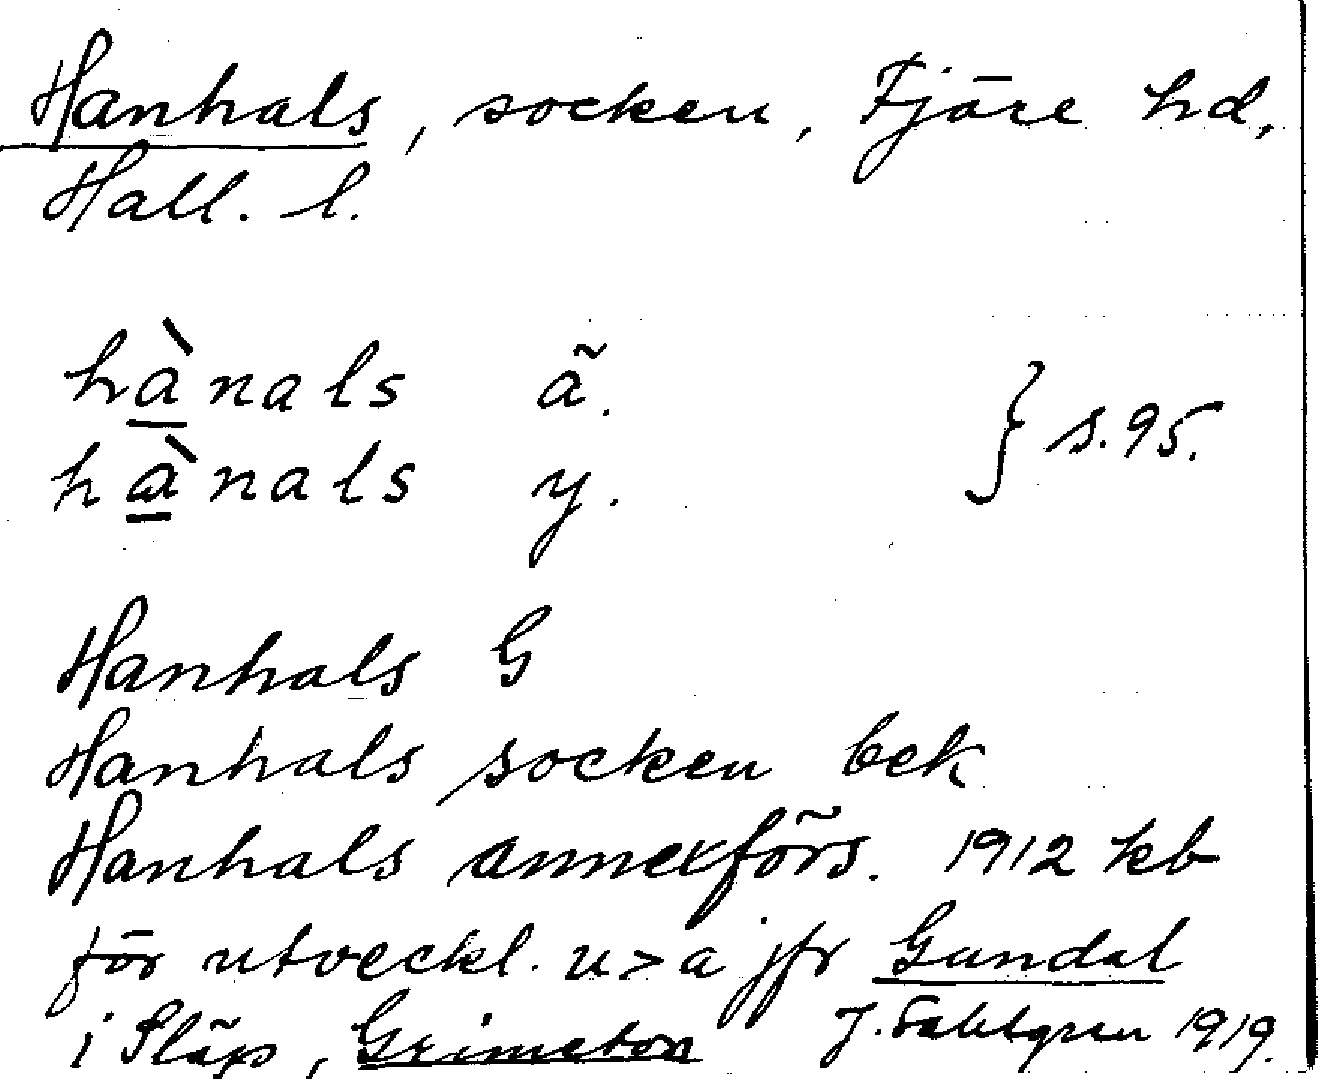 Hanhals, socken, Fjäre hd,
Hall. l.
hànals ä.
hànals y.
} s. 95.
Hanhals G
Hanhals socken bek
Hanhals annexförs. 1912 kb
för utveckl. u > a jfr Gundal
i Släp, Grimeton J. Sahlgren 1919.